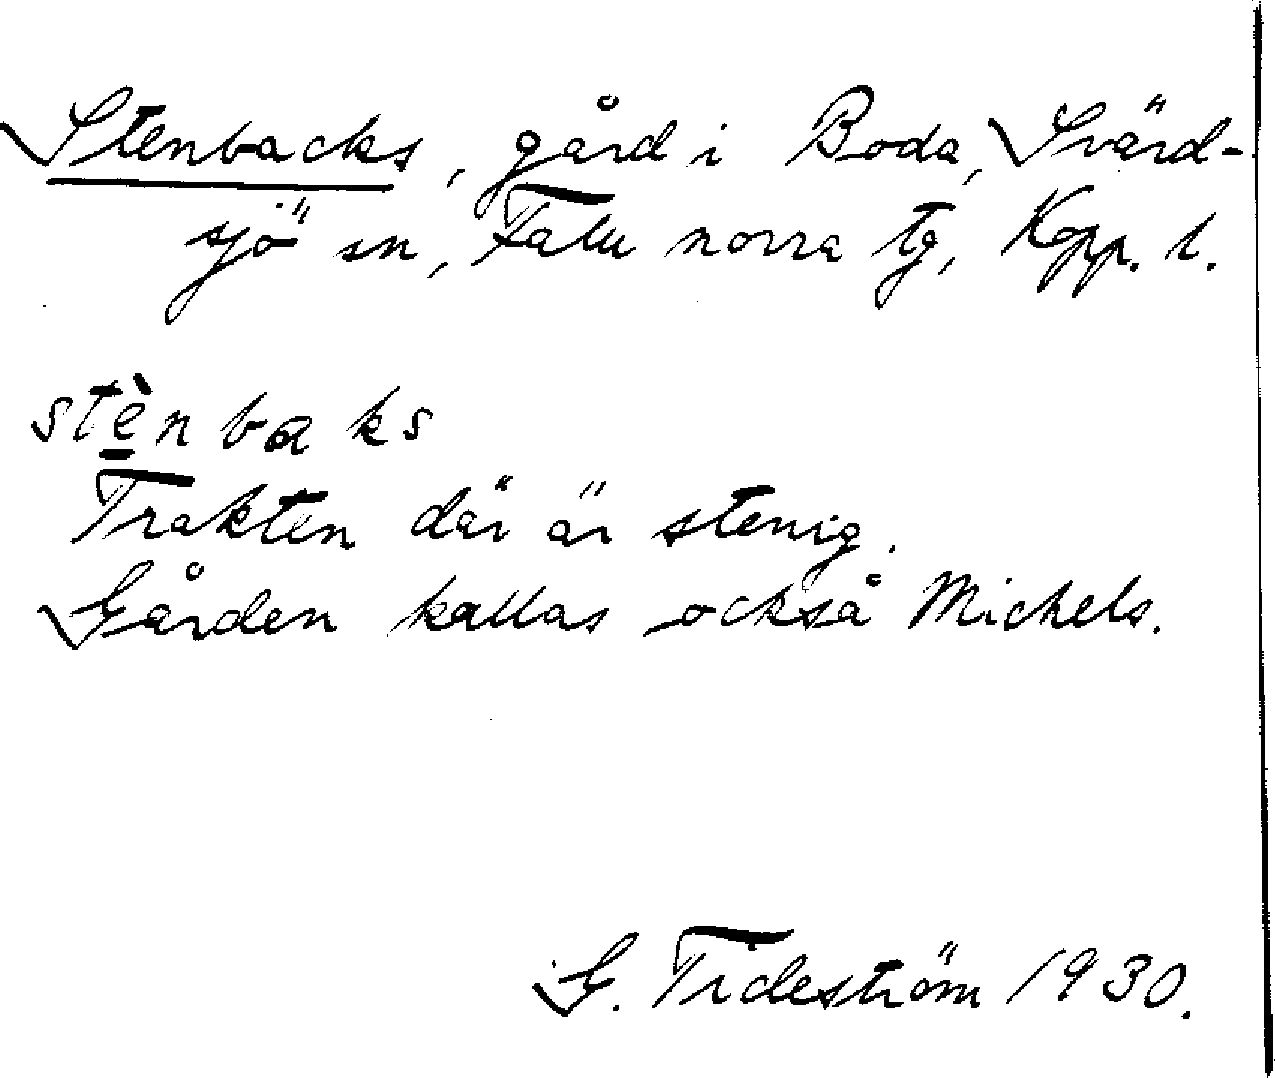 Stenbacks, gård i Boda, Svärd-
sjö sn, Falu norra tg, Kopp. l.
stè̲nbaks
Trakten där är stenig.
Gården kallas också Michels.
G. Tideström 1930.